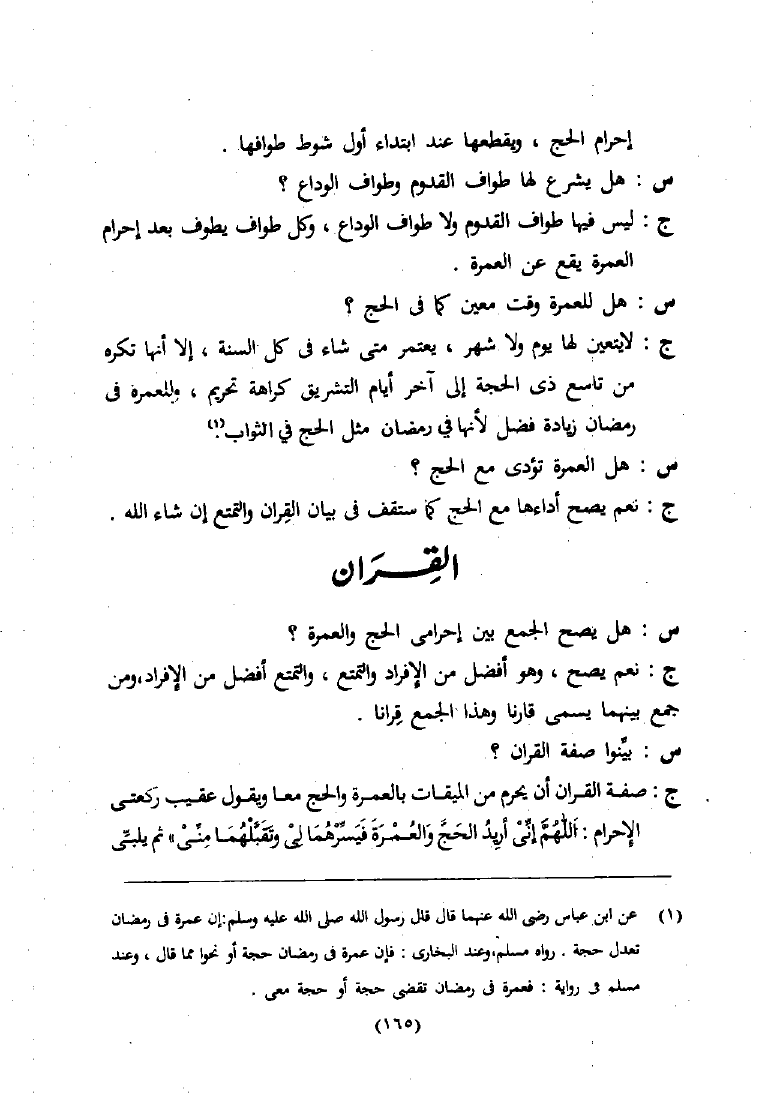 إحرام الحج ، ويقطعها عند ابتداء أول شوط طوافها .
س : هل يشرع لها طواف القدوم وطواف الوداع ؟
ج : ليس فيها طواف القدوم ولا طواف الوداع ، وكل طواف يطوف بعد إحرام
العمرة يقع عن العمرة .
س : هل للعمرة وقت معين كما فى الحج ؟
ج : لايتعين لها يوم ولا شهر ، يعتمر متى شاء فى كل السنة ، إلا أنها تكره
من تاسع ذى الحجة إلى آخر أيام التشريق كراهة تحريم ، وللعمرة فى
رمضان زيادة فضل لأنها في رمضان مثل الحج في الثواب.(١)
س : هل العمرة تؤدى مع الحج ؟
ج : نعم يصح أداءها مع الحج كما ستقف فى بيان القِران والتمتع إن شاء الله .
القِـــرَان
س : هل يصح الجمع بين إحرامى الحج والعمرة ؟
ج : نعم يصح ، وهو أفضل من الإفراد والتمتع ، والتمتع أفضل من الإفراد،ومن
جمع بينهما يسمى قارنا وهذا الجمع قِرانا .
س : بيِّنوا صفة القران ؟
ج : صفـة القـران أن يحرم من الميقـات بالعمـرة والحج معـا ويقـول عقـيب ركعتـى
الإحرام : اَللّٰهُمَّ إِنِّىْ أُرِيدُ الحَجَّ وَالعُمْـرَةَ فَيَسِّرْهُمَا لِىْ وَتَقَبَّلْهُمَـا مِنِّـىْ» ثم يلبّى
(١) عن ابن عباس رضى الله عنهما قال قال رسول الله صلى الله عليه وسلم:إن عمرة فى رمضان
تعدل حجة . رواه مسلم،وعند البخارى : فإن عمرة فى رمضان حجة أو نحوا مما قال ، وعند
مسلم فى رواية : فعمرة فى رمضان تقضى حجة أو حجة معى .
(١٦٥)